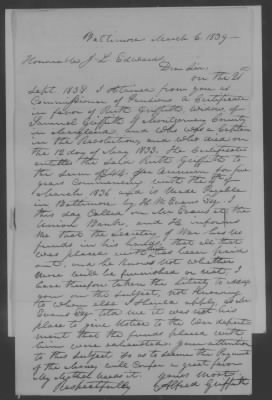 Baltimore March 6. 1839 –
Honourable J L Edwards
Dear Sir
on the 21st
Sept. 1838 I obtained from you as
Commissioner of Pensions a Certificate
in favor of Ruth Griffith widow of
Samuel Griffith of Montgomery County
in Maryland and who was a Captain
in the Revolution, and who died on
the 12 day of May 1833. The Certificate
entitles the said Ruth Griffith to
the sum of 
pr Annum for five
years Commencing with the 4th
March 1836 and is made Payable
in Baltimore by H W Evans Esq. I
this day Called on Mr Evans at the
Union Bank, and He informs
Me that the Secretary of War has no
funds in his hands, that all that
was placed with him has been paid
out, and he knows not whether
more will be furnished or not, I
have therefore taken the liberty to address
you on the subject, not knowing
to whom else I should apply, as Mr
Evans Esq told me it was not his
place to give notice to the War depart-
ment that the funds placed with
him were exhausted. your attention
to this subject so as to secure the Payment
of the Money will Confer a great favor
My Mother needs it. yours most
Respectfully
Alfred Griffith